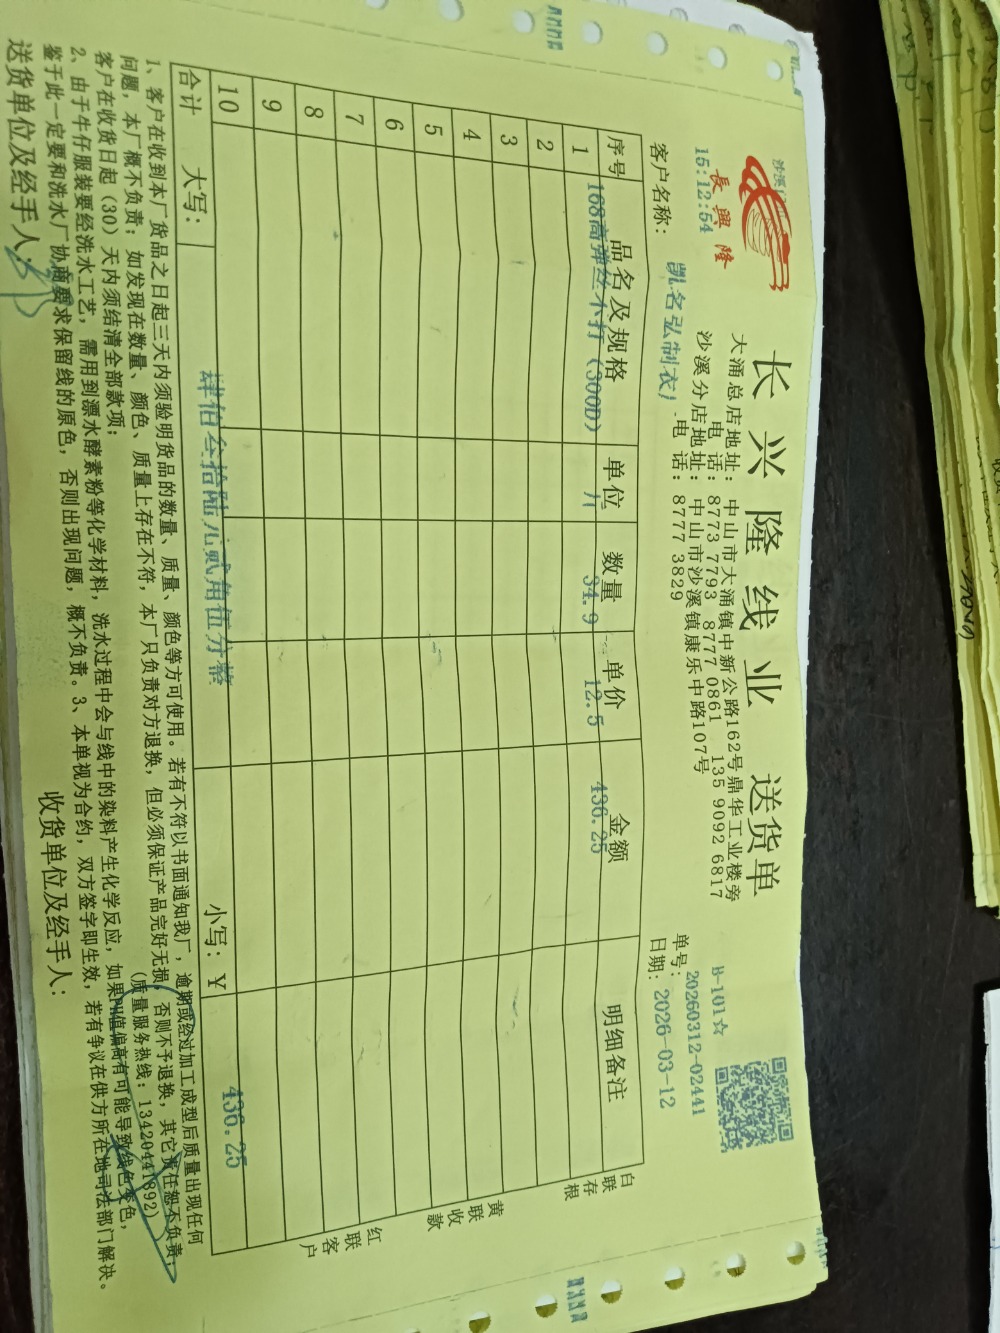 沙溪
長興隆
15:12:54
长兴隆线业 送货单
大涌总店地址: 中山市大涌镇中新公路162号鼎华工业楼旁
电 话: 8773 7793 8777 0861 135 9092 6817
沙溪分店地址: 中山市沙溪镇康乐中路107号
电 话: 8777 3829
B-101☆
单号: 20260312-02441
客户名称: 凯名弘制衣厂
日期: 2026-03-12
序号 品名及规格 单位 数量 单价 金额 明细备注
1 168高弹丝不打(300D) 34.9 12.5 436.25
2
3
4
5
6
7
8
9
10
合计 大写: 肆佰叁拾陆元贰角伍分整 小写: ¥ 436.25
白联存根
黄联收款
红联客户
1、客户在收到本厂货品之日起三天内须验明货品的数量、质量、颜色等方可使用。若有不符以书面通知我厂, 逾期或经过加工成型后质量出现任何
问题, 本厂概不负责; 如发现在数量、颜色、质量上存在不符, 本厂只负责对方退换, 但必须保证产品完好无损, 否则不予退换, 其它责任恕不负责;
客户在收货日起 (30) 天内须结清全部款项; (质量服务热线: 13420441892)
2、由于牛仔服装要经洗水工艺, 需用到漂水酵素粉等化学材料, 洗水过程中会与线中的染料产生化学反应, 如果PH值偏高有可能导致线色变色,
鉴于此一定要和洗水厂协商要求保留线的原色, 否则出现问题, 概不负责。3、本单视为合约, 双方签字即生效, 若有争议在供方所在地司法部门解决。
送货单位及经手人: 收货单位及经手人: